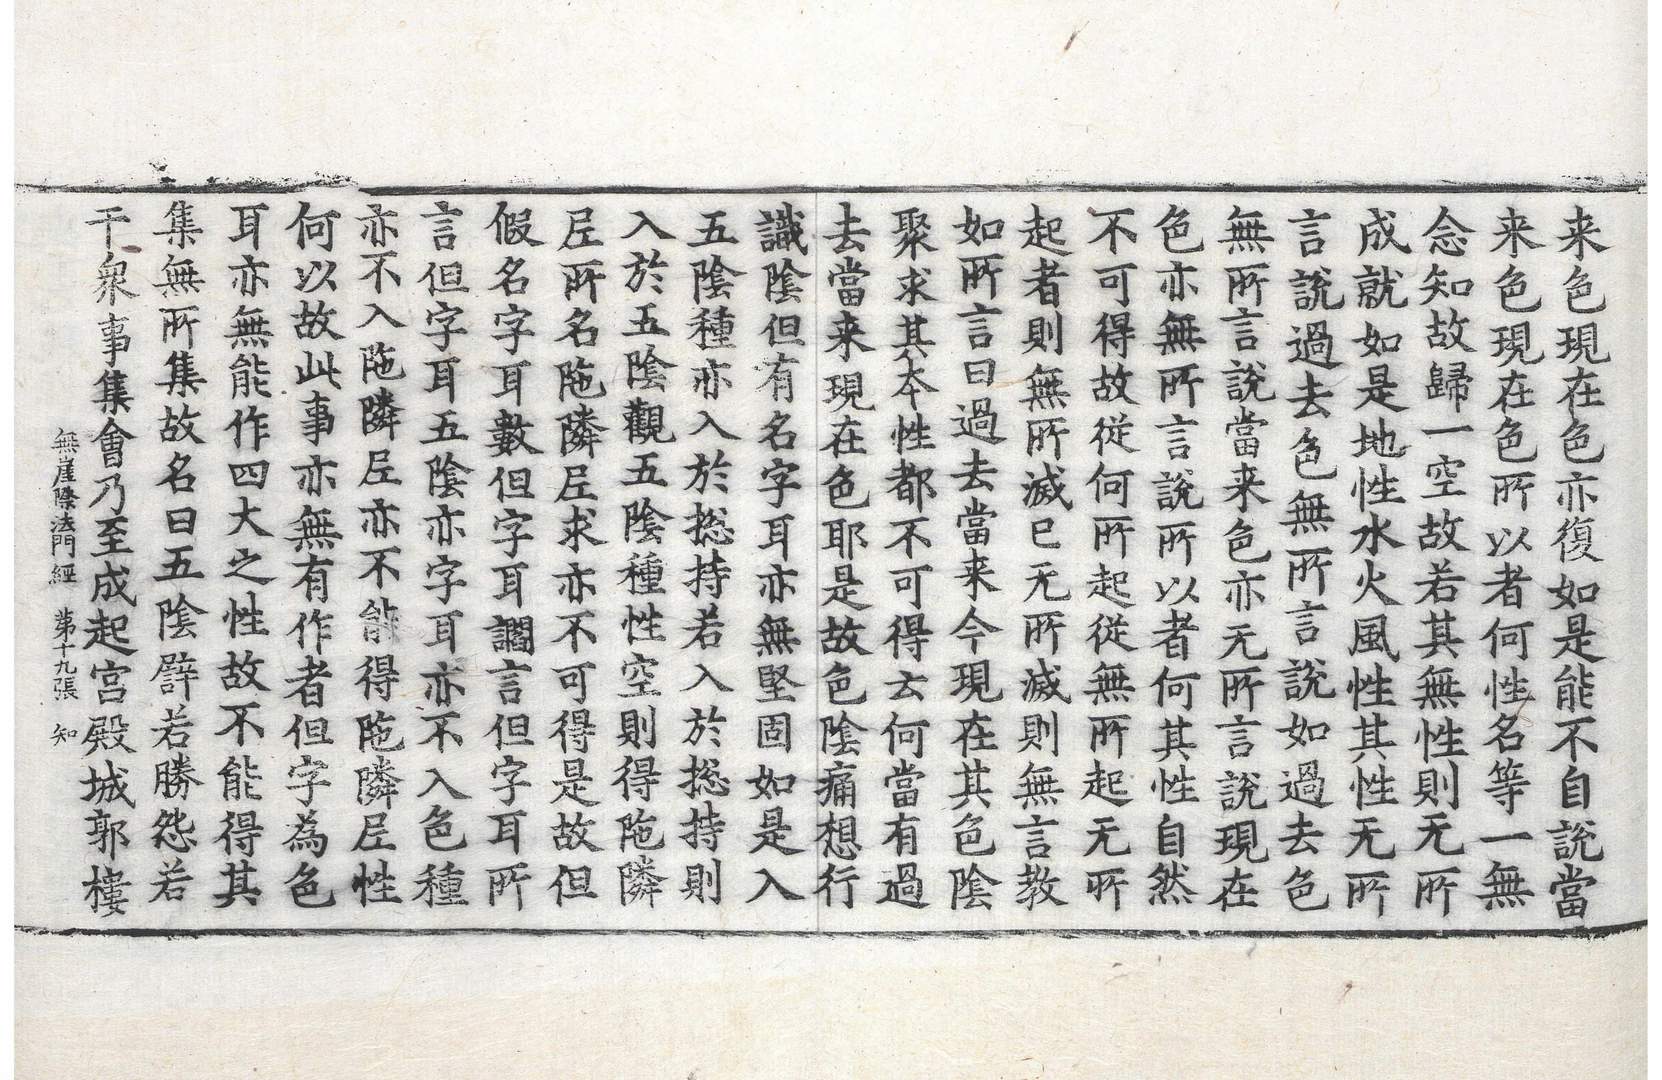 来色現在色亦復如是能不自說當
来色現在色所以者何性名等一無
念知故歸一空故若其無性則无所
成就如是地性水火風性其性无所
言說過去色無所言說如過去色
無所言說當来色亦无所言說現在
色亦無所言說所以者何其性自然
不可得故從何所起從無所起无所
起者則無所滅已无所滅則無言教
如所言曰過去當来今現在其色陰
聚求其本性都不可得云何當有過
去當来現在色耶是故色陰痛想行
識陰但有名字耳亦無堅固如是入
五陰種亦入於揔持若入於揔持則
入於五陰觀五陰種性空則得陁隣
尼所名陁隣尼求亦不可得是故但
假名字耳數但字耳讕言但字耳所
言但字耳五陰亦字耳亦不入色種
亦不入陁隣尼亦不能得陁隣尼性
何以故此事亦無有作者但字為色
耳亦無能作四大之性故不能得其
集無所集故名曰五陰譬若勝怨若
干衆事集會乃至成起宮殿城郭樓
無崖際法門經 第十九張 知